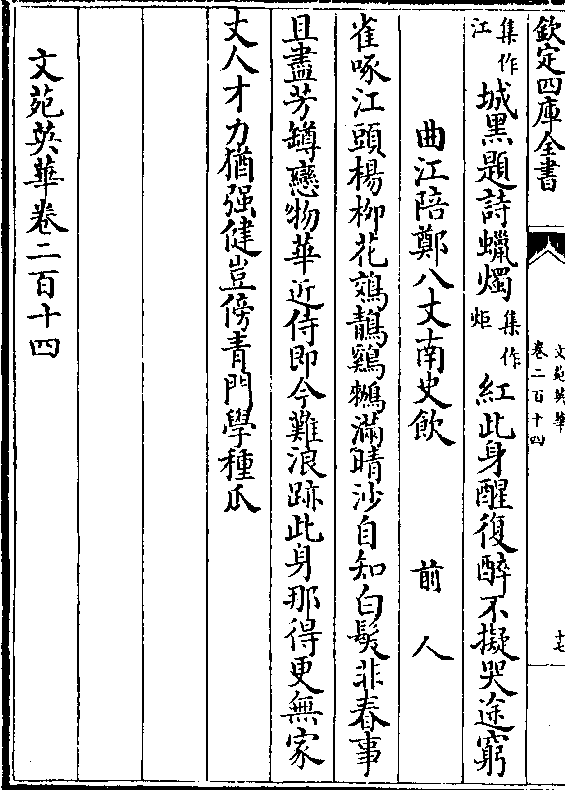 欽定四庫全書
文苑英華
卷二百十四
十七
集作江城黒題詩蠟燭集作炬紅此身醒復醉不擬哭途窮
曲江陪鄭八丈南史飲　前人
雀啄江頭楊柳花鵁鶄鸂鶒滿晴沙自知白髮非春事
且盡芳罇戀物華近侍即今難浪跡此身那得更無家
丈人才力猶强健豈傍青門學種瓜
文苑英華卷二百十四